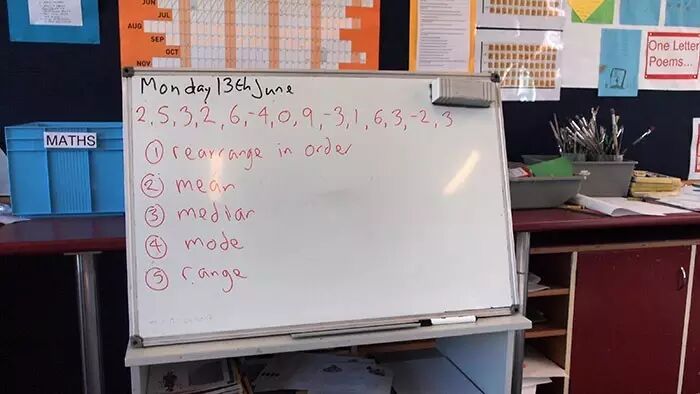 JUN
JUL
AUG
SEP
OCT
NOV
One Letter
Poems...
Monday 13th June
2, 5, 3, 2, 6, -4, 0, 9, -3, 1, 6, 3, -2, 3
MATHS
① rearrange in order
② mean
③ median
④ mode
⑤ range